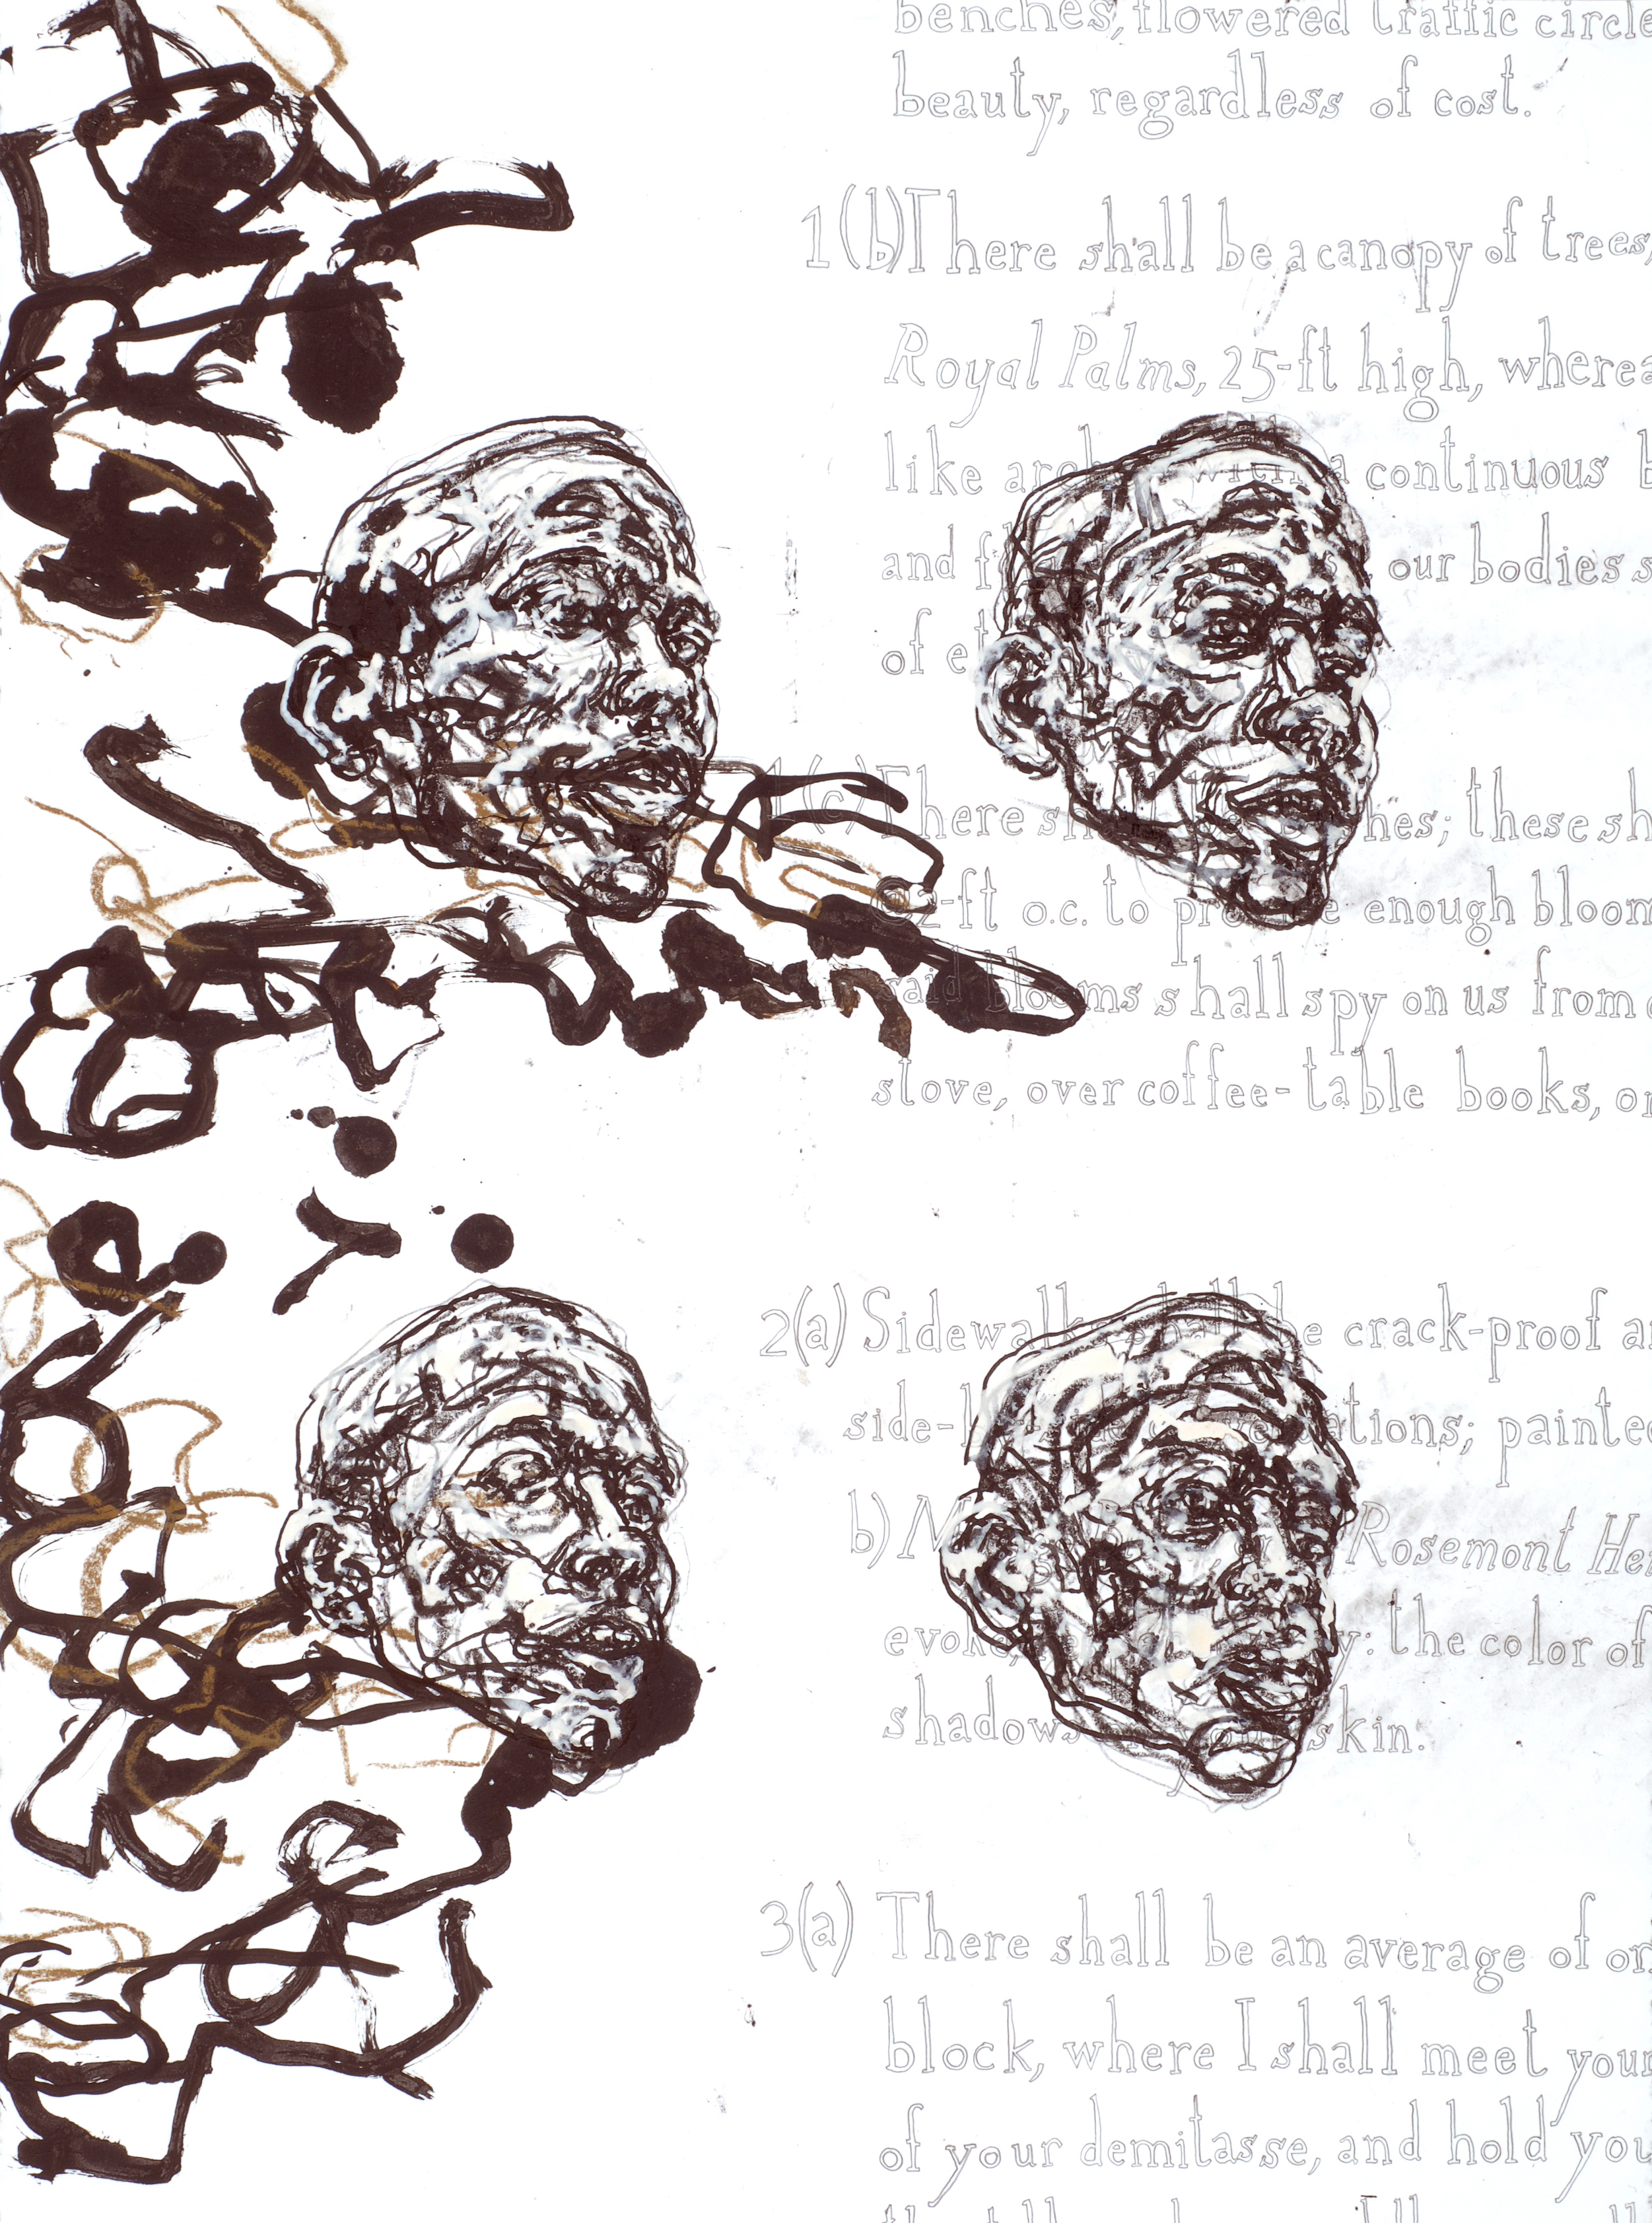 benches, flowered traffic circle
beauty, regardless of cost.
1(b) There shall be a canopy of trees,
Royal Palms, 25-ft high, wherea
like with a continuous b
and our bodies s
of
1(c) There shall hes; these sh
-ft o.c. to provide enough bloom
said blooms shall spy on us from
stove, over coffee-table books, or
2(a) Sidewalks shall be crack-proof a
side- ations; painte
b) Rosemont He
evoke, the color of
shadows skin.
3(a) There shall be an average of on
block, where I shall meet your
of your demitasse, and hold you